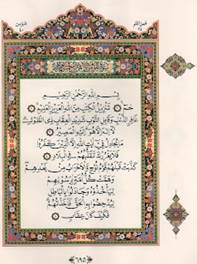 بِسْمِ اللَّهِ الرَّحْمَنِ الرَّحِيمِ
حم تَنْزِيلُ الْكِتَابِ مِنَ اللَّهِ الْعَزِيزِ الْعَلِيمِ
غَافِرِ الذَّنْبِ وَقَابِلِ التَّوْبِ شَدِيدِ الْعِقَابِ ذِي الطَّوْلِ لَا
إِلَهَ إِلَّا هُوَ إِلَيْهِ الْمَصِيرُ
مَا يُجَادِلُ فِي آيَاتِ اللَّهِ إِلَّا الَّذِينَ كَفَرُوا
فَلَا يَغْرُرْكَ تَقَلُّبُهُمْ فِي الْبِلَادِ
كَذَّبَتْ قَبْلَهُمْ قَوْمُ نُوحٍ وَالْأَحْزَابُ مِنْ بَعْدِهِمْ
وَهَمَّتْ كُلُّ أُمَّةٍ بِرَسُولِهِمْ
لِيَأْخُذُوهُ وَجَادَلُوا بِالْبَاطِلِ
لِيُدْحِضُوا بِهِ الْحَقَّ فَأَخَذْتُهُمْ
فَكَيْفَ كَانَ عِقَابِ